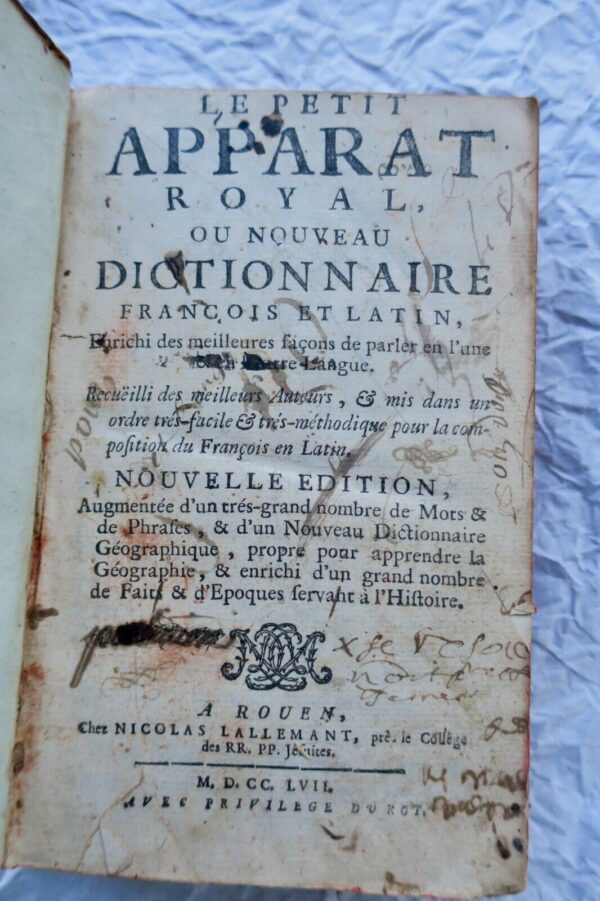 LE PETIT
APPARAT
ROYAL,
OU NOUVEAU
DICTIONNAIRE
FRANCOIS ET LATIN,
Enrichi des meilleures façons de parler en l'une
Langue.
Recuëilli des meilleurs Auteurs, & mis dans un
ordre trés-facile & trés-méthodique pour la com-
position du François en Latin.
NOUVELLE EDITION,
Augmentée d'un trés-grand nombre de Mots &
de Phraſes, & d'un Nouveau Dictionnaire
Géographique, propre pour apprendre la
Géographie, & enrichi d'un grand nombre
de Faits & d'Epoques ſervant à l'Hiſtoire.
A ROUEN,
Chez NICOLAS LALLEMANT, prê. le Collége
des RR. PP. Jéſuites.
M. D. CC. LVII.
AVEC PRIVILEGE DU ROY.